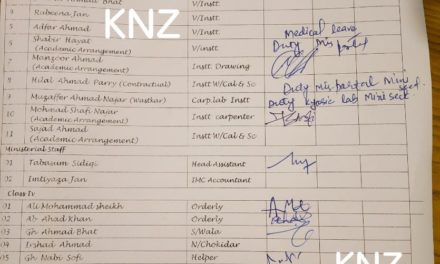 Bhat V/Instt
Rubeena Jan V/Instt
5 Adfar Ahmad V/Instt Medical leave
6 Shabir Hayat V/instt Duty
(Academic Arrangement)
7 Manzoor Ahmad Instt Drawing
(Academic Arrangement)
8 Hilal Ahmad Parry (Contractual) Instt W/Cal & Sc
9 Muzaffer Ahmad Najar (Wastkar) Carp.lab Instt Duty
10 Mohmad Shafi Najar Instt carpenter
(Academic Arrangement)
11 Sajad Ahmad Instt W/Cal & Sc
(Academic Arrangement)
Ministerial Staff
01 Tabasum Sidiqi Head Assistant
02 Imtiyaza Jan IMC Accountant
Class Iv
01 Ali Mohammad sheikh Orderly
02 Ab Ahad Khan Orderly
03 Gh Ahmad Bhat S/Wala
04 Irshad Ahmad N/Chokidar
05 Gh Nabi Sofi Helper
KNZ
KNZ